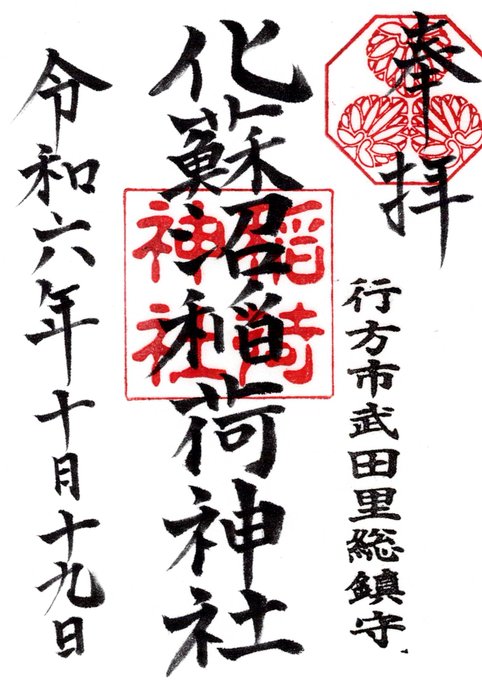 奉拝
行方市武田里総鎮守
化蘇沼稲荷神社
稲荷
神社
令和六年十月十九日